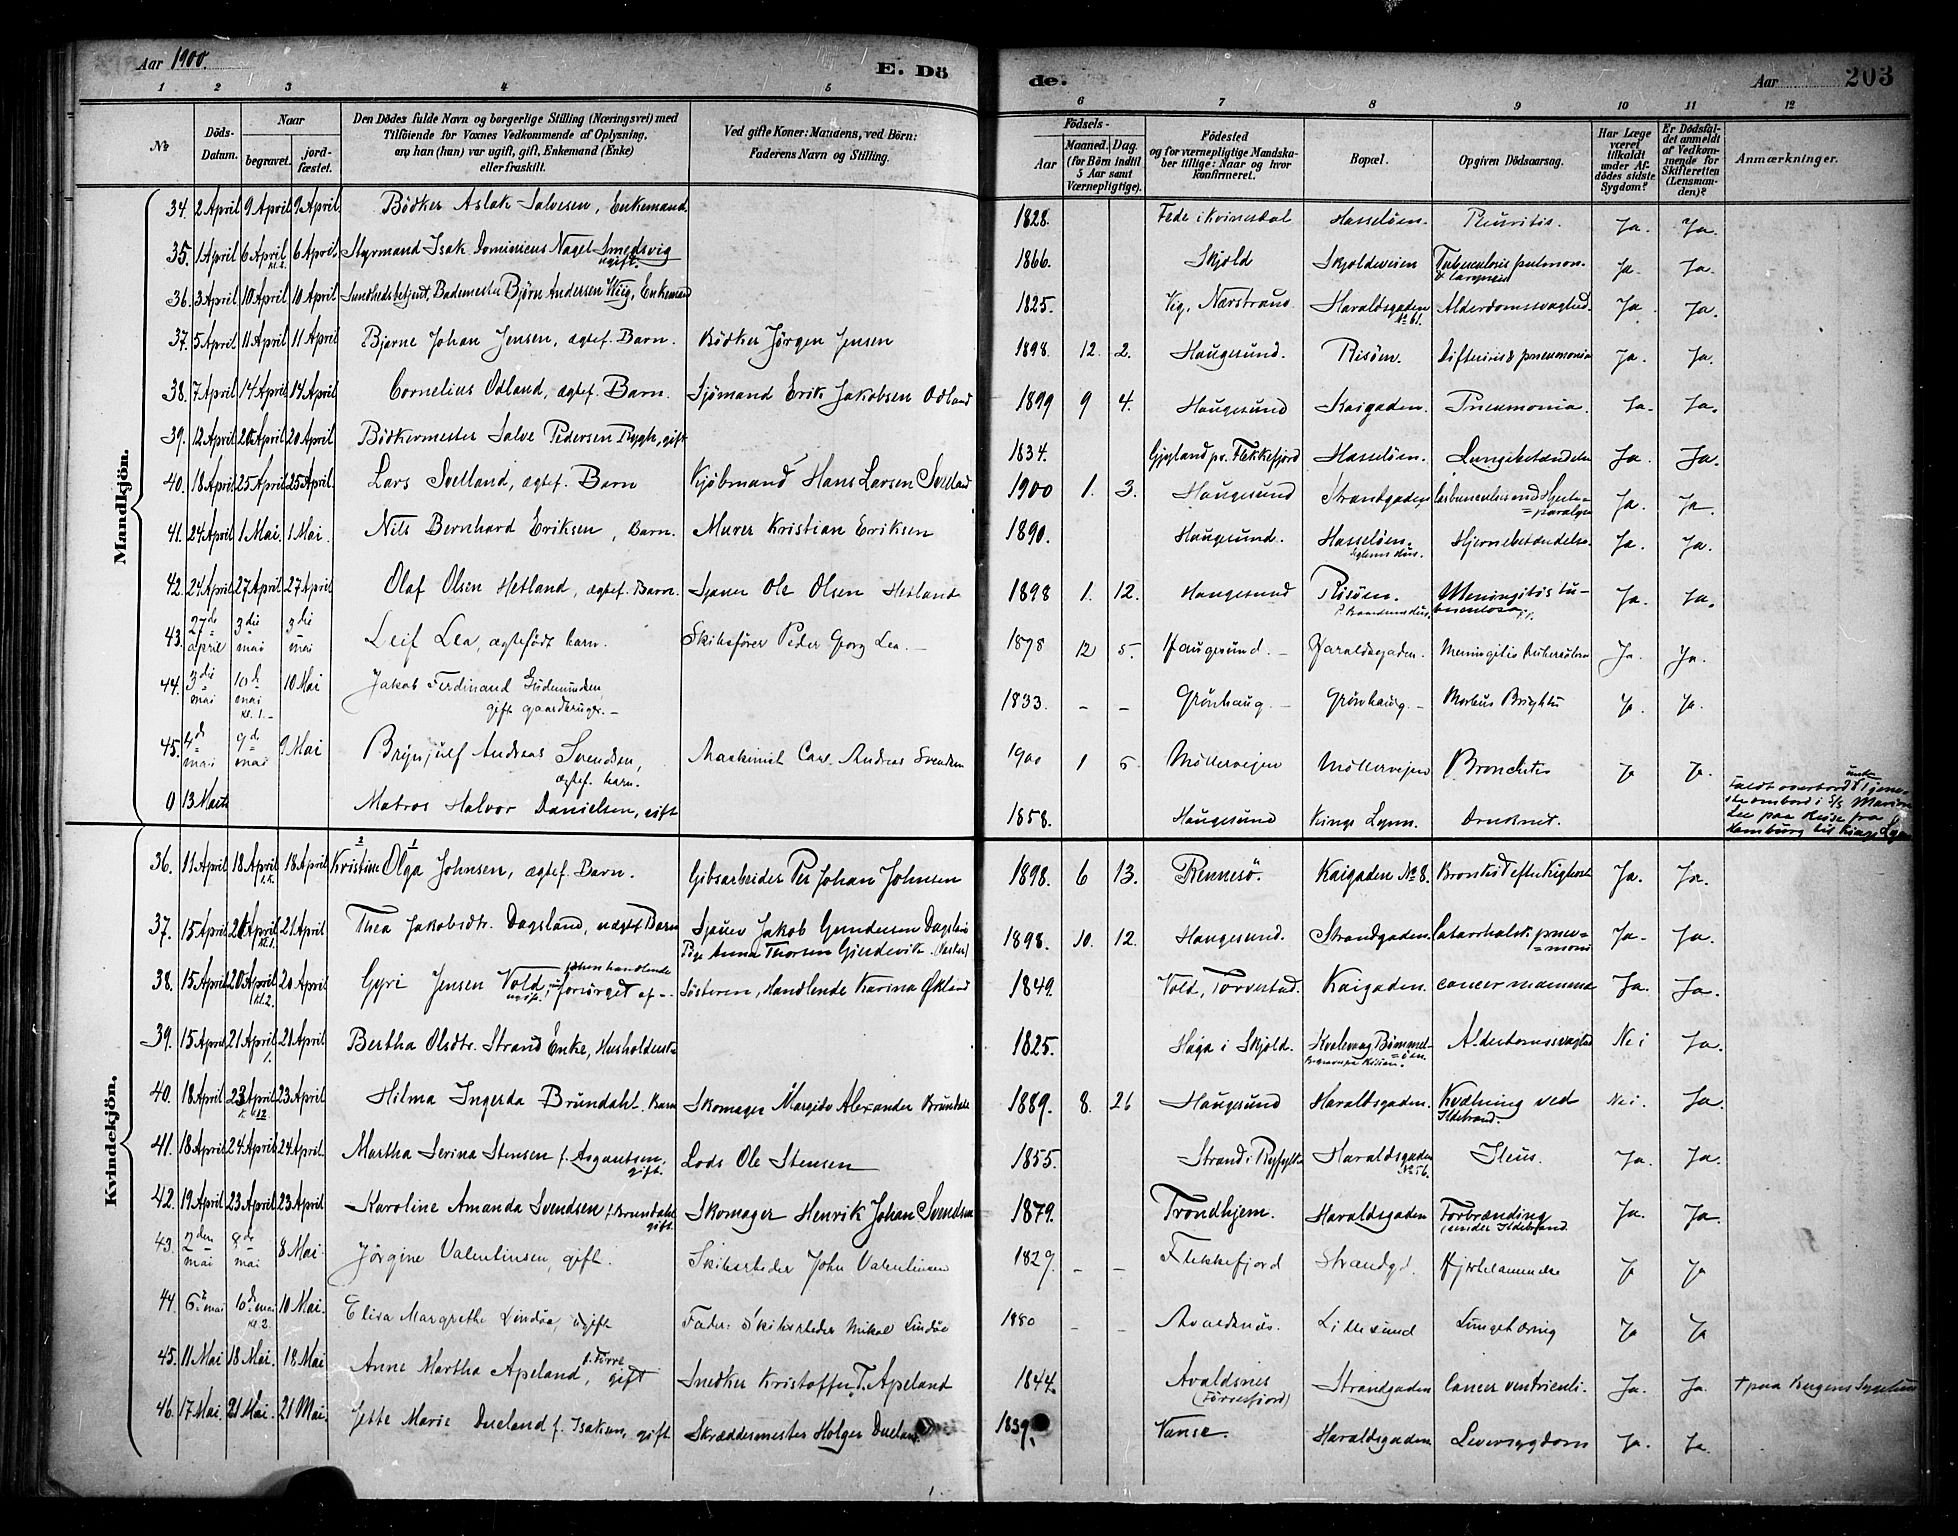 Aar 1900.
E. Dö
de.
Aar
203
1 2 3 4 5 6 7 8 9 10 11 12
No
Döds-Datum.
Naar
begravet.
jord-fæstet.
Den Dödes fulde Navn og borgerlige Stilling (Næringsvei) med
Tilföiende for Voxnes Vedkommende af Oplysning,
om han (hun) var ugift, gift, Enkemand (Enke)
eller fraskilt.
Ved gifte Koner: Mandens, ved Börn:
Faderens Navn og Stilling.
Födsels-
Aar
Maaned. Dag.
(for Börn indtil
5 Aar samt
Værnepligtige).
Födested
og for værnepligtige Mandska-
ber tillige: Naar og hvor
konfirmeret.
Bopæl.
Opgiven Dödsaarsag.
Har Læge
været
tilkaldt
under Af-
dödes sidste
Sygdom?
Er Dödsfal-
det anmeldt
af Vedkom-
mende for
Skifteretten
(Lensman-
den)?
Anmærkninger.
Mandkjön.
34. 2 April 9 April 9 April Bödker Aslak Salvesen, Enkemand. 1828. Fede i Kvinesdal Hasselöen. Pleuritis. Ja. Ja.
35. 1 April 6 April kl. 2. 6 April Styrmand Isak Dominicus Nagel Smedsvig ugift. 1866. Skjold Skjoldeveien Tuberculosis pulmon. & laryngis Ja. Ja.
36. 3 April 10 April 10 April Sundhedsbetjent, Bademester Björn Andersen Wiig, Enkemand 1825. Vig, Nærstrand Haraldsgaden No 61. Alderdomssvaghed. Ja. Ja.
37. 5 April 11 April 11 April Bjarne Johan Jensen, ægtef. Barn. Bödker Jörgen Jensen 1898. 12. 2. Haugesund. Risöen. Difteri & pneumonia Ja. Ja.
38. 7 April 14 April 14 April Cornelius Odland, ægtef. Barn. Sjömand Erik Jakobsen Odland 1899 9 4. Haugesund Kaigaden. Pneumonia. Ja. Ja.
39. 12 April 20 April 20 April Bödkermester Salve Pedersen Rygh, gift 1834. Gyland pr. Flekkefjord Hasselöen. Lungebetændelse Ja. Ja.
40. 18 April 25 April 25 April. Lars Svelland, ægtef. Barn Kjöbmand Hans Larsen Svelland 1900 1. 3. Haugesund Strandgaden Ja. Ja.
41. 24 April 1 Mai. 1 Mai. Nils Bernhard Eriksen, Barn. Murer Kristian Eriksen 1890. Haugesund. Hasselöen. Hjernebetændelse. Ja. Ja.
42. 24 April 27 April 27 April Olaf Olsen Hetland, ægtef. Barn. Sjauer Ole Olsen Hetland 1898 1. 12. Haugesund Risöen. Meningitis tuberculosa Ja. Ja.
43. 27de april 3die mai 3die mai Leif Lea, ægtefödt barn. Skibsförer Peder Georg Lea. 1898 12 5. Haugesund. Haraldsgaden. Meningitis tuberculosa Ja. Ja.
44. 3die mai 10de mai kl. 1. 10 Mai Jakob Ferdinand Gudmundsen, gift gaardbruger. 1833. - - Grönhaug. Grönhaug. Morbus Brightii Ja. Ja.
45. 4de mai 9de mai 9 Mai Brynjulf Andreas Svendsen, ægtef. barn. Maskinist Carl Andreas Svendsen 1900 1 5 Möllervejen Möllervejen Bronchitis Ja Ja.
0 13 Marts Matros Halvor Danielsen, gift 1858. Haugesund Kings Lynn. Druknet. Faldt overbord under Tjeneste ombord i S/S Marion Lee paa Reise fra Hamburg til Kings Lynn
Kvindekjön.
36. 11 April 18 April 18 April Kristine 2 Olga 1 Johnsen, ægtef. Barn. Gibsarbeider Per Johan Johnsen 1898. 6 13. Rennesö. Kaigaden No 8. Bronkit efter Kighoste Ja. Ja.
37. 15 April 21 April kl. 1. 21 April Thea Jakobsdtr. Dagsland, uægtef Barn Sjauer Jakob Gundersen Dagsland Pige Anna Thorsen Gjerdevik 1898. 10. 12. Haugesund. Strandgaden. Catarrhalsk pneumoni Ja. Ja.
38. 15 April 20 April kl. 2. 20 April Gyri Jensen Vold, ugift, forsörget af Sösteren, Handlende Karina Økland 1849. Vold, Torvestad. Kaigaden. cancer mammae Ja. Ja.
39. 15 April 21 April 1. 21 April Bertha Olsdtr. Strand Enke, Husholderske 1825. Haga i Skjold. Kvalevaag Bömmelöen. Alderdomssvaghed Nei Ja.
40. 18 April 23 April K. 12 23 April Hilma Ingerda Brundahl. Barn Skomager Margido Alexander Brundahl 1889. 8. 26 Haugesund Haraldsgaden. Kvælning ved Ildebrand. Nei. Ja.
41. 18 April 24 April 24 April. Martha Serina Stensen f. Asgautsen, gift. Lods Ole Stensen 1855. Strand i Ryfylke Haraldsgaden No 56. Ileus. Ja. Ja.
42. 19 April 23 April 23 April Karoline Amanda Svendsen f. Brundahl gift Skomager Henrik Johan Svendsen 1879. Trondhjem. Haraldsgaden Forbrænding under Ildebrand Ja. Ja.
43. 2den mai 8de mai 8 Mai Jörgine Valentinsen, gift. Skibsreder John Valentinsen 1829. - - Flekkefjord Strandgd. Hjertelammelse Ja Ja
44. 6te mai 10de mai kl. 2. 10 Mai. Elisa Margrethe Lindöe, ugift Fader: Skibsreder Mikal Lindöe 1880 - - Avaldsnæs. Lillesund Lungetæring Ja Ja
45. 11 Mai 18 Mai. 18 Mai Anne Martha Apeland, f. Förre gift Snedker Kristoffer T. Apeland 1844. Avaldsnes (Förresfjord) Strandgaden Cancer ventriculi. Ja. Ja. † paa Bergens Sygehus
46. 17 Mai. 21 Mai. 21 Mai. Jette Marie Dueland f. Isaksen, gift Skræddermester Holger Dueland 1839. Vanse. Haraldsgaden Leversygdom Ja. Ja.